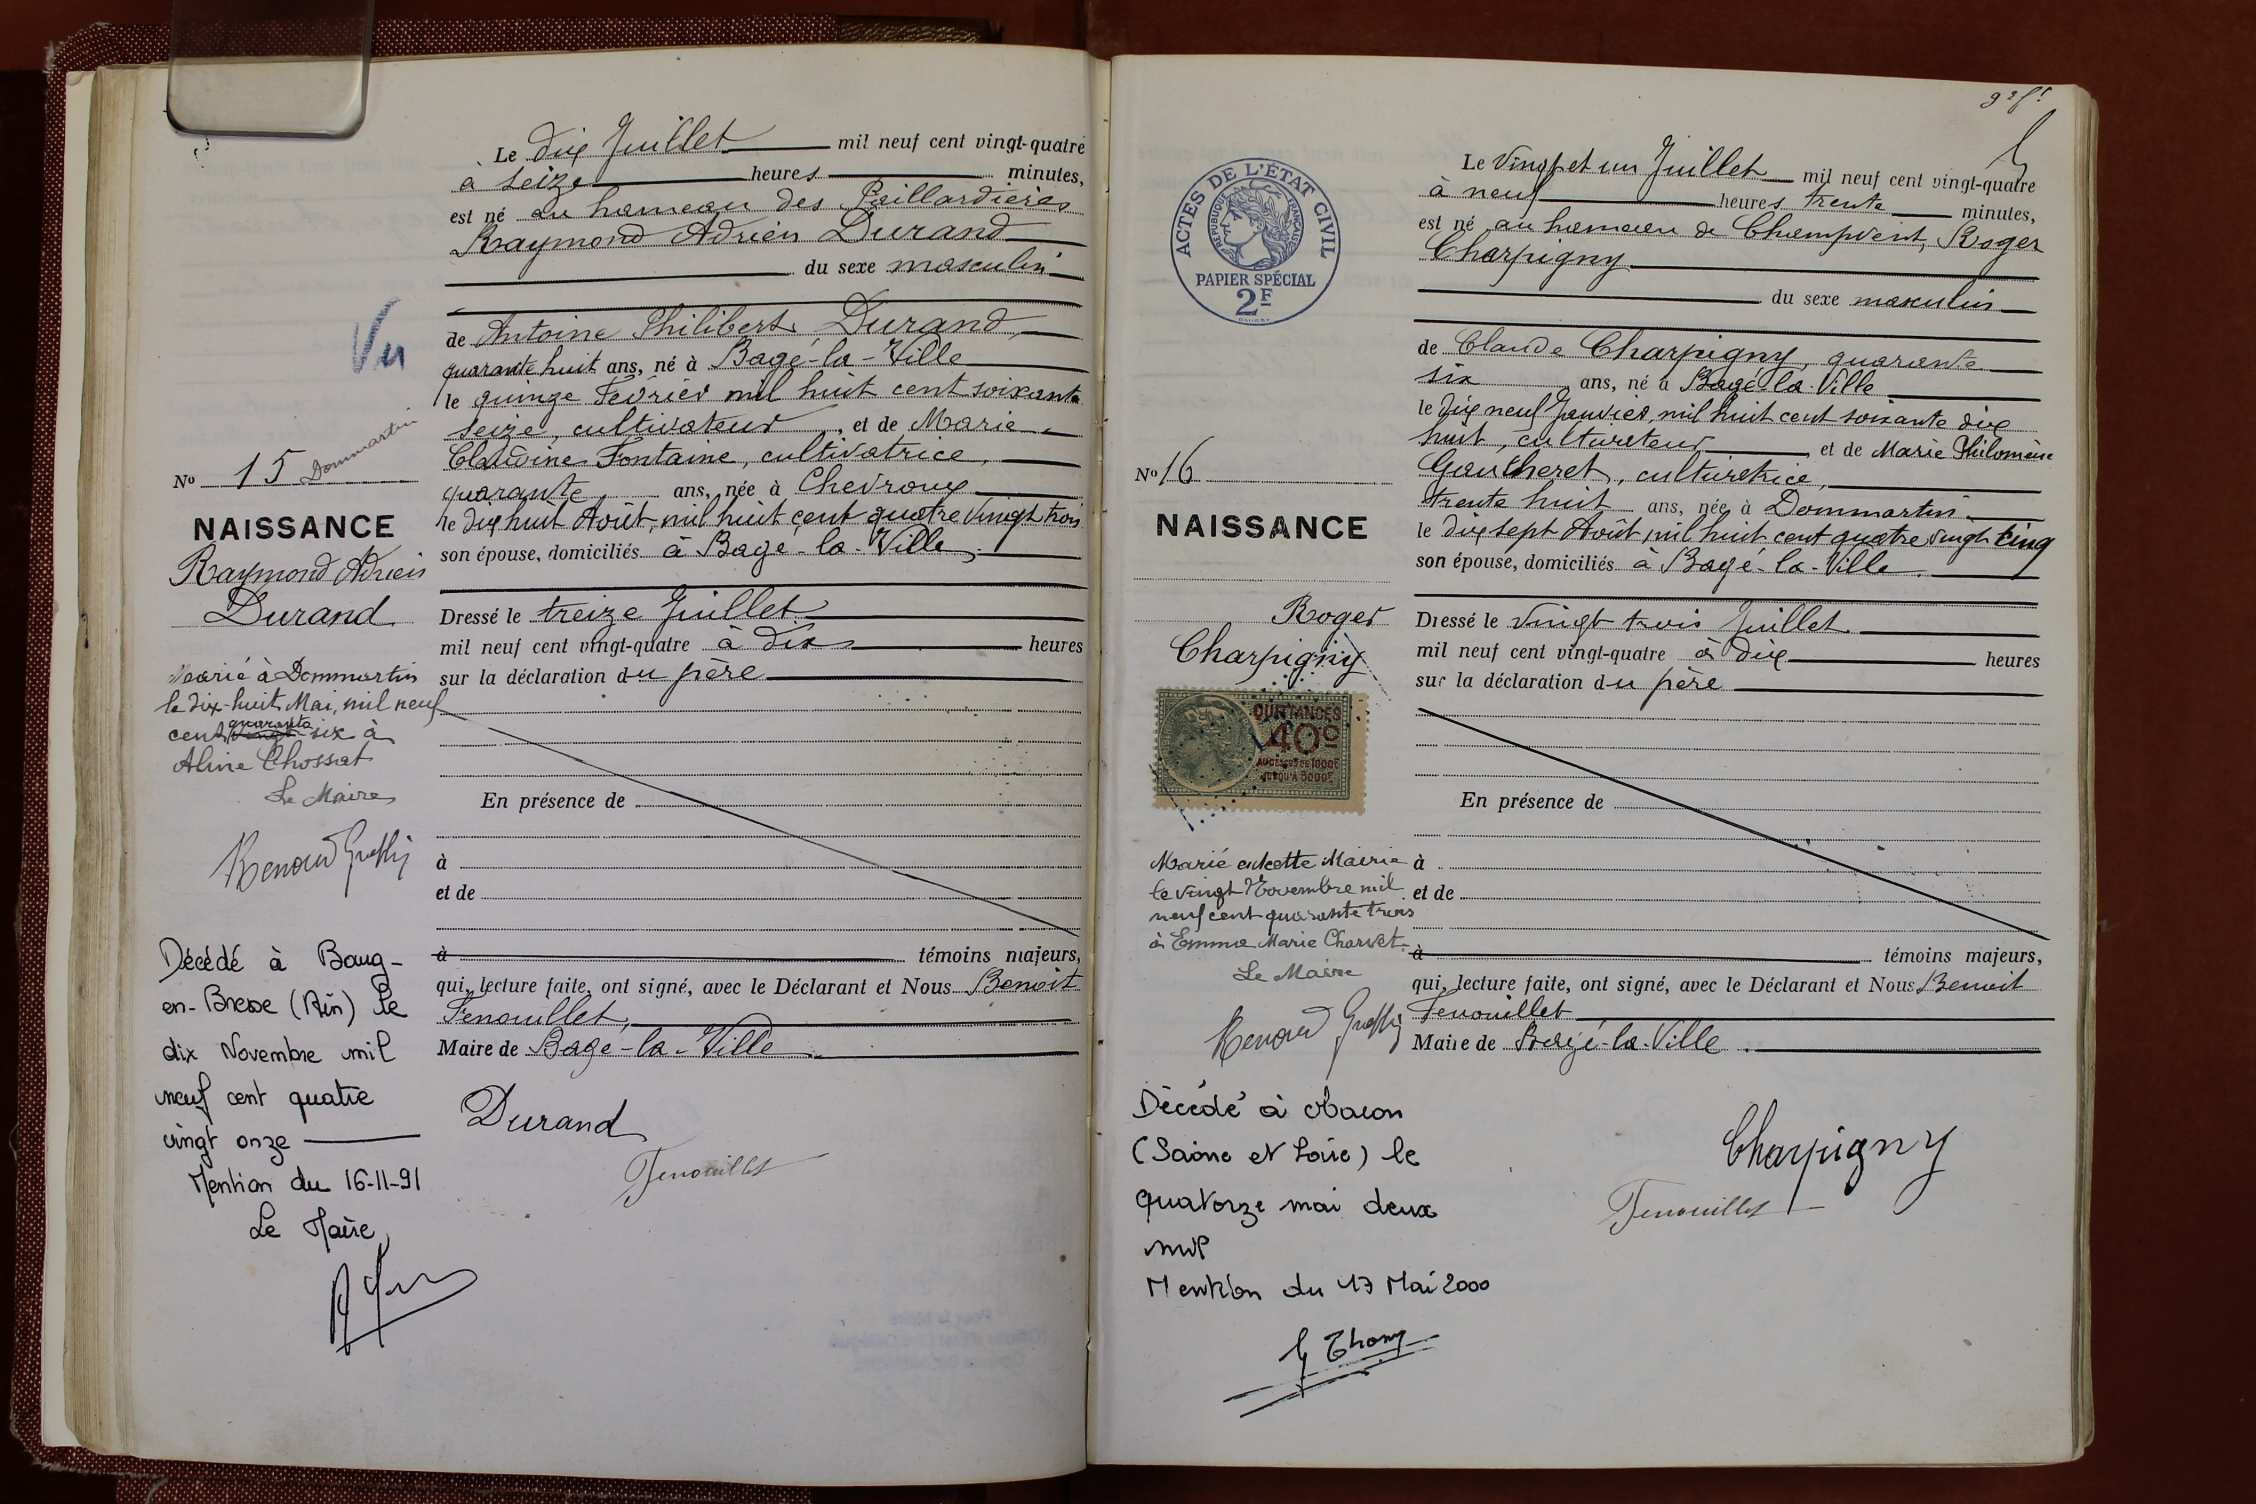 Le dix Juillet mil neuf cent vingt-quatre
à seize heures minutes,
est né au hameau des Paillardières
Raymond Adrien Durand
du sexe masculin
de Antoine Philibert Durand,
quarante huit ans, né à Bagé-la-Ville
le quinze Février mil huit cent soixante
seize, cultivateur, et de Marie
Claudine Fontaine, cultivatrice,
quarante ans, née à Chevroux
le dix huit Août, mil huit cent quatre vingt trois
son épouse, domiciliés à Bagé-la-Ville.
Dressé le treize Juillet
mil neuf cent vingt-quatre à dix heures
sur la déclaration du père
En présence de
à
et de
à témoins majeurs,
qui, lecture faite, ont signé, avec le Déclarant et Nous Benoit
Fenouillet,
Maire de Bagé-la-Ville.
Durand
Fenouillet
Vu
No 15 Dommartin
NAISSANCE
Raymond Adrien
Durand
Marié à Dommartin
le dix-huit Mai, mil neuf
quarante
cent vingt-six à
Aline Chossat
Le Maire
Décédé à Bourg-
en-Bresse (Ain) le
dix Novembre mil
neuf cent quatre
vingt onze
Mention du 16-11-91
Le Maire
ACTES DE L'ÉTAT CIVIL
RÉPUBLIQUE FRANÇAISE
PAPIER SPÉCIAL
2F
Le Vingt et un Juillet mil neuf cent vingt-quatre
à neuf heures trente minutes,
est né au hameau de Champvent, Roger
Charpigny
du sexe masculin
de Claude Charpigny, quarante
six ans, né à Bagé-la-Ville
le dix neuf Janvier, mil huit cent soixante dix
huit, cultivateur, et de Marie Philomène
Gaucheret, cultivatrice,
trente huit ans, née à Dommartin
le dix sept Août mil huit cent quatre vingt cinq
son épouse, domiciliés à Bagé-la-Ville.
Dressé le vingt trois Juillet
mil neuf cent vingt-quatre à dix heures
sur la déclaration du père
En présence de
à
et de
à témoins majeurs,
qui, lecture faite, ont signé, avec le Déclarant et Nous Benoit
Fenouillet
Maire de Bagé-la-Ville.
Charpigny
Fenouillet
No 16
NAISSANCE
Roger
Charpigny
QUITTANCES
40c
AU-DESSUS DE 1000F
JUSQU'A 3000F
Marié en cette Mairie
le vingt Novembre mil
neuf cent quarante trois
à Emma Marie Charvet.
Le Maire
Décédé à Macon
(Saône et Loire) le
quatorze mai deux
mil
Mention du 17 Mai 2000